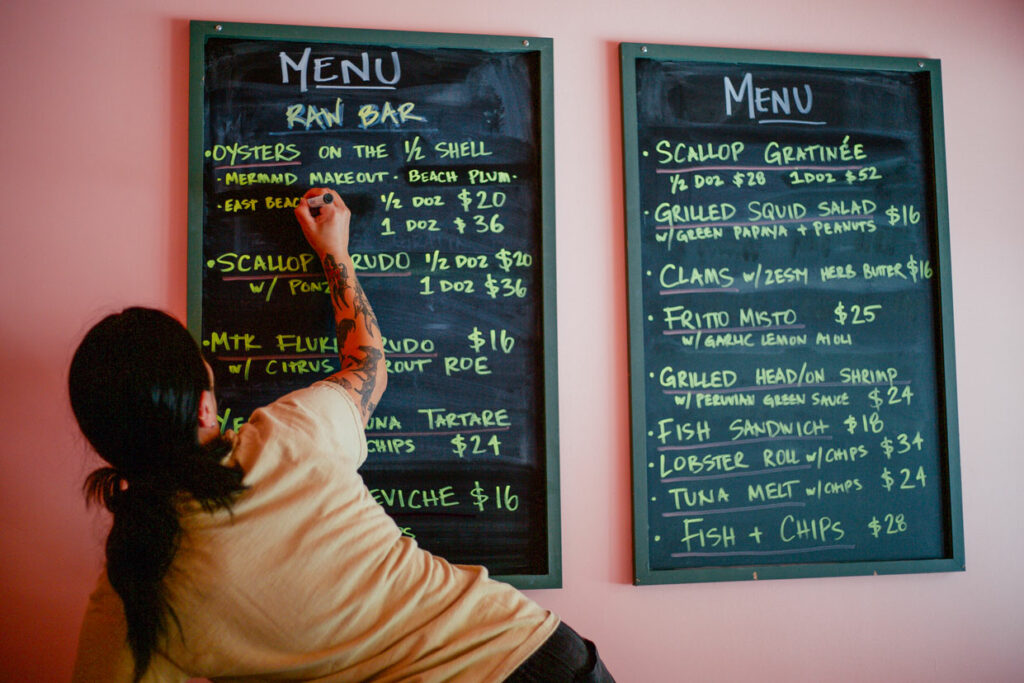 MENU
RAW BAR
• OYSTERS ON THE 1/2 SHELL
• MERMAID MAKEOUT • BEACH PLUM •
• EAST BEAC 1/2 DOZ $20
1 DOZ $36
• SCALLOP RUDO 1/2 DOZ $20
W/ PONZ 1 DOZ $36
• MTK FLUK RUDO $16
W/ CITRUS ROUT ROE
YE UNA TARTARE
CHIPS $24
EVICHE $16
MENU
• SCALLOP GRATINÉE
1/2 DOZ $28 1 DOZ $52
• GRILLED SQUID SALAD $16
W/ GREEN PAPAYA + PEANUTS
• CLAMS W/ ZESTY HERB BUTTER $16
• FRITTO MISTO $25
W/ GARLIC LEMON AIOLI
• GRILLED HEAD/ON SHRIMP
W/ PERUVIAN GREEN SAUCE $24
• FISH SANDWICH $18
• LOBSTER ROLL W/ CHIPS $34
• TUNA MELT W/ CHIPS $24
• FISH + CHIPS $28